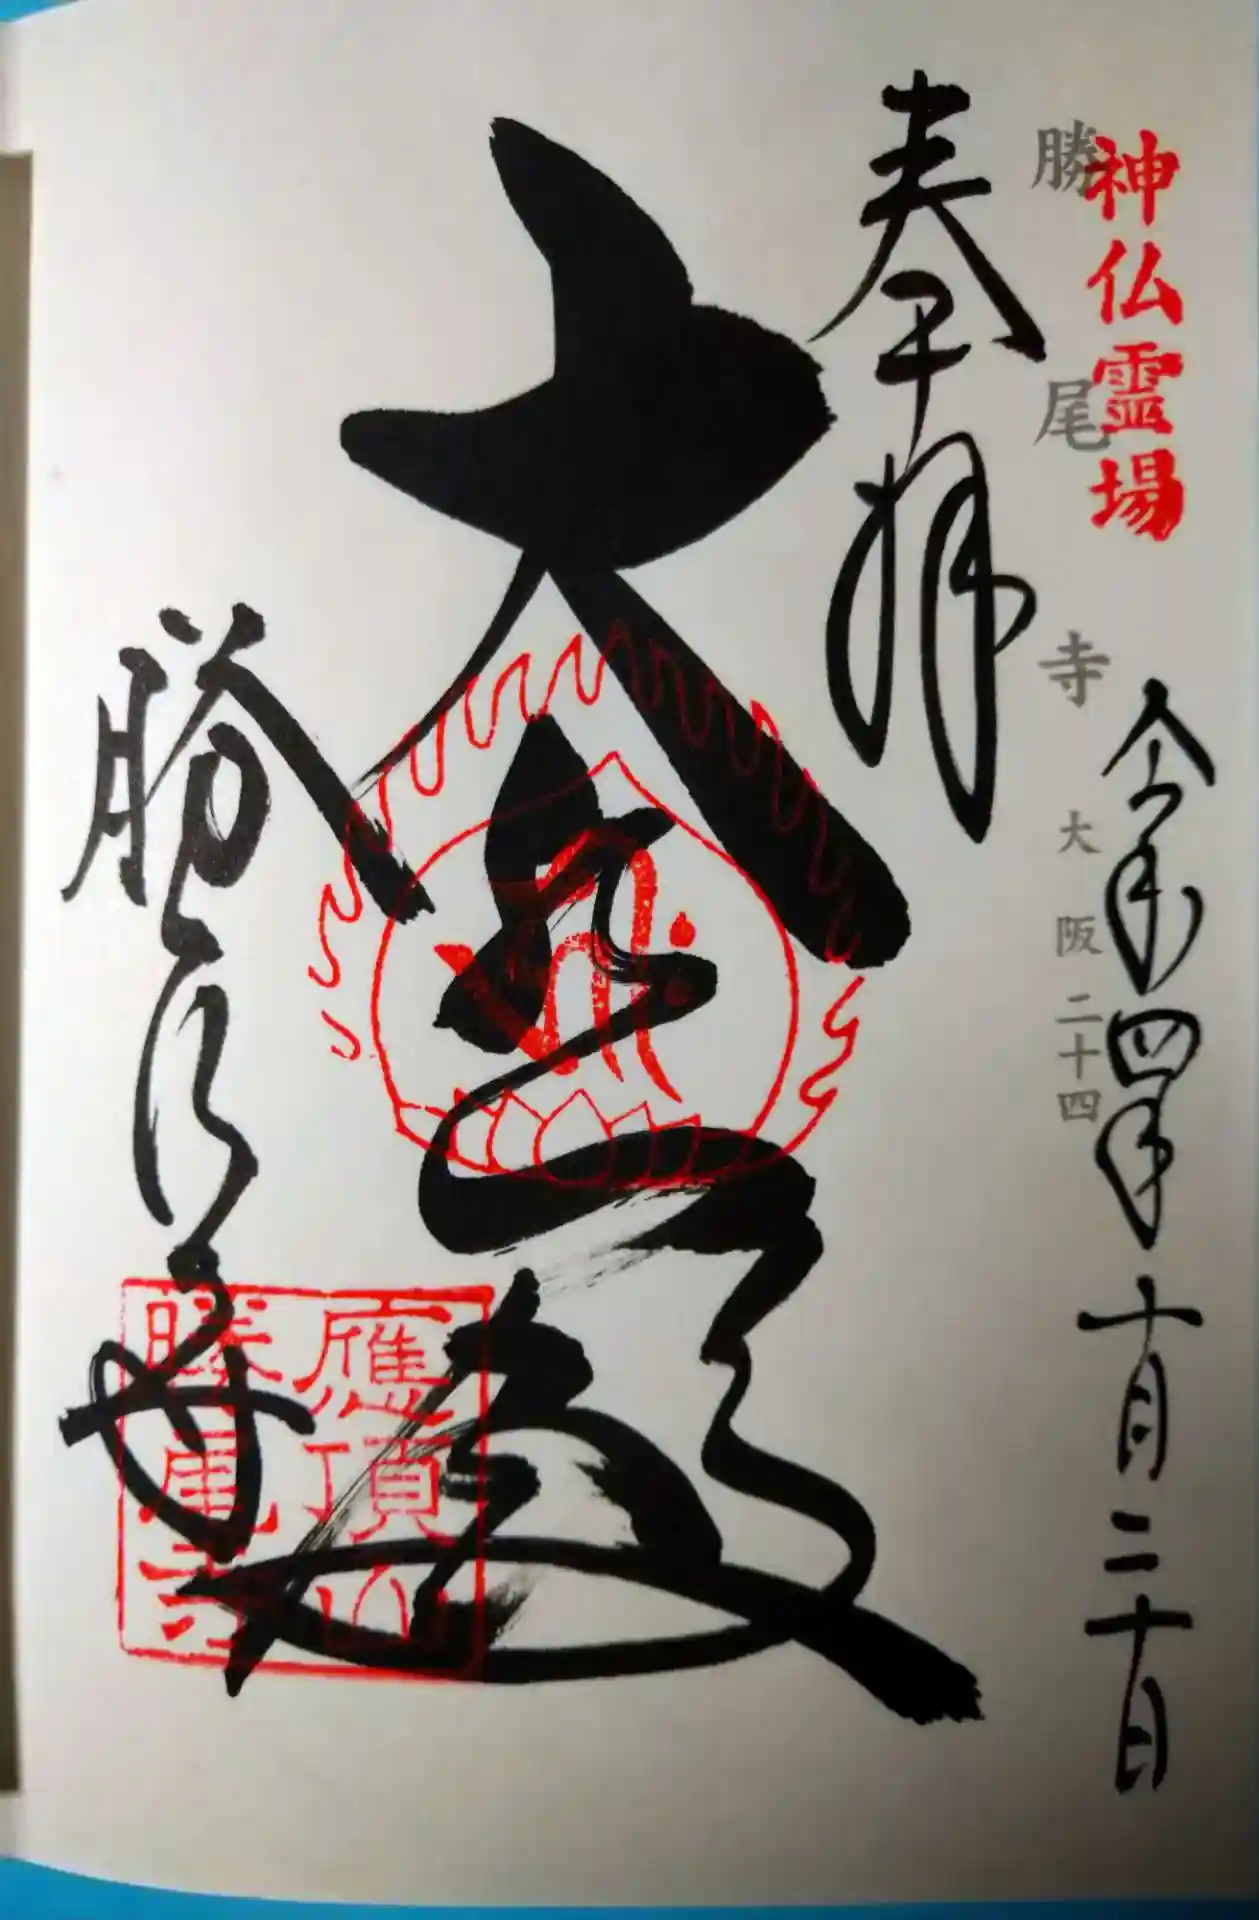 神仏霊場
勝尾寺
大阪二十四
令和四年十月二十日
奉拝
大悲殿
勝尾寺
應頂山
勝尾寺